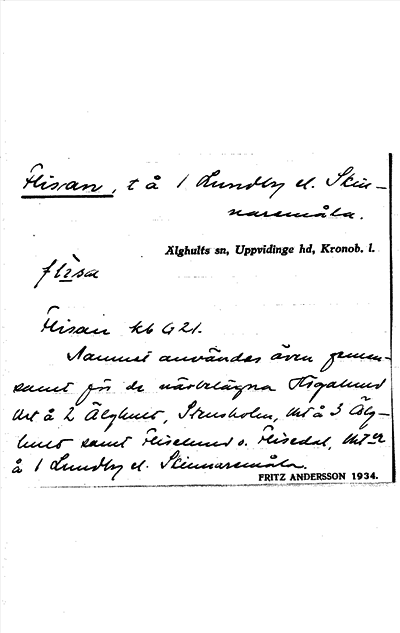 Flisan, t å 1 Lundby el. Skin-
narsmåla.
Älghults sn, Uppvidinge hd, Kronob. l.
flìsa
Flisan kb G 21.
Namnet användes även gemen-
samt för de närbelägna Högalund
å 2 Älghult, Stensholm, å 3 Älg-
hult samt Fliselund o. Flisedal,
å 1 Lundby el. Skinnarsmåla.
FRITZ ANDERSSON 1934.